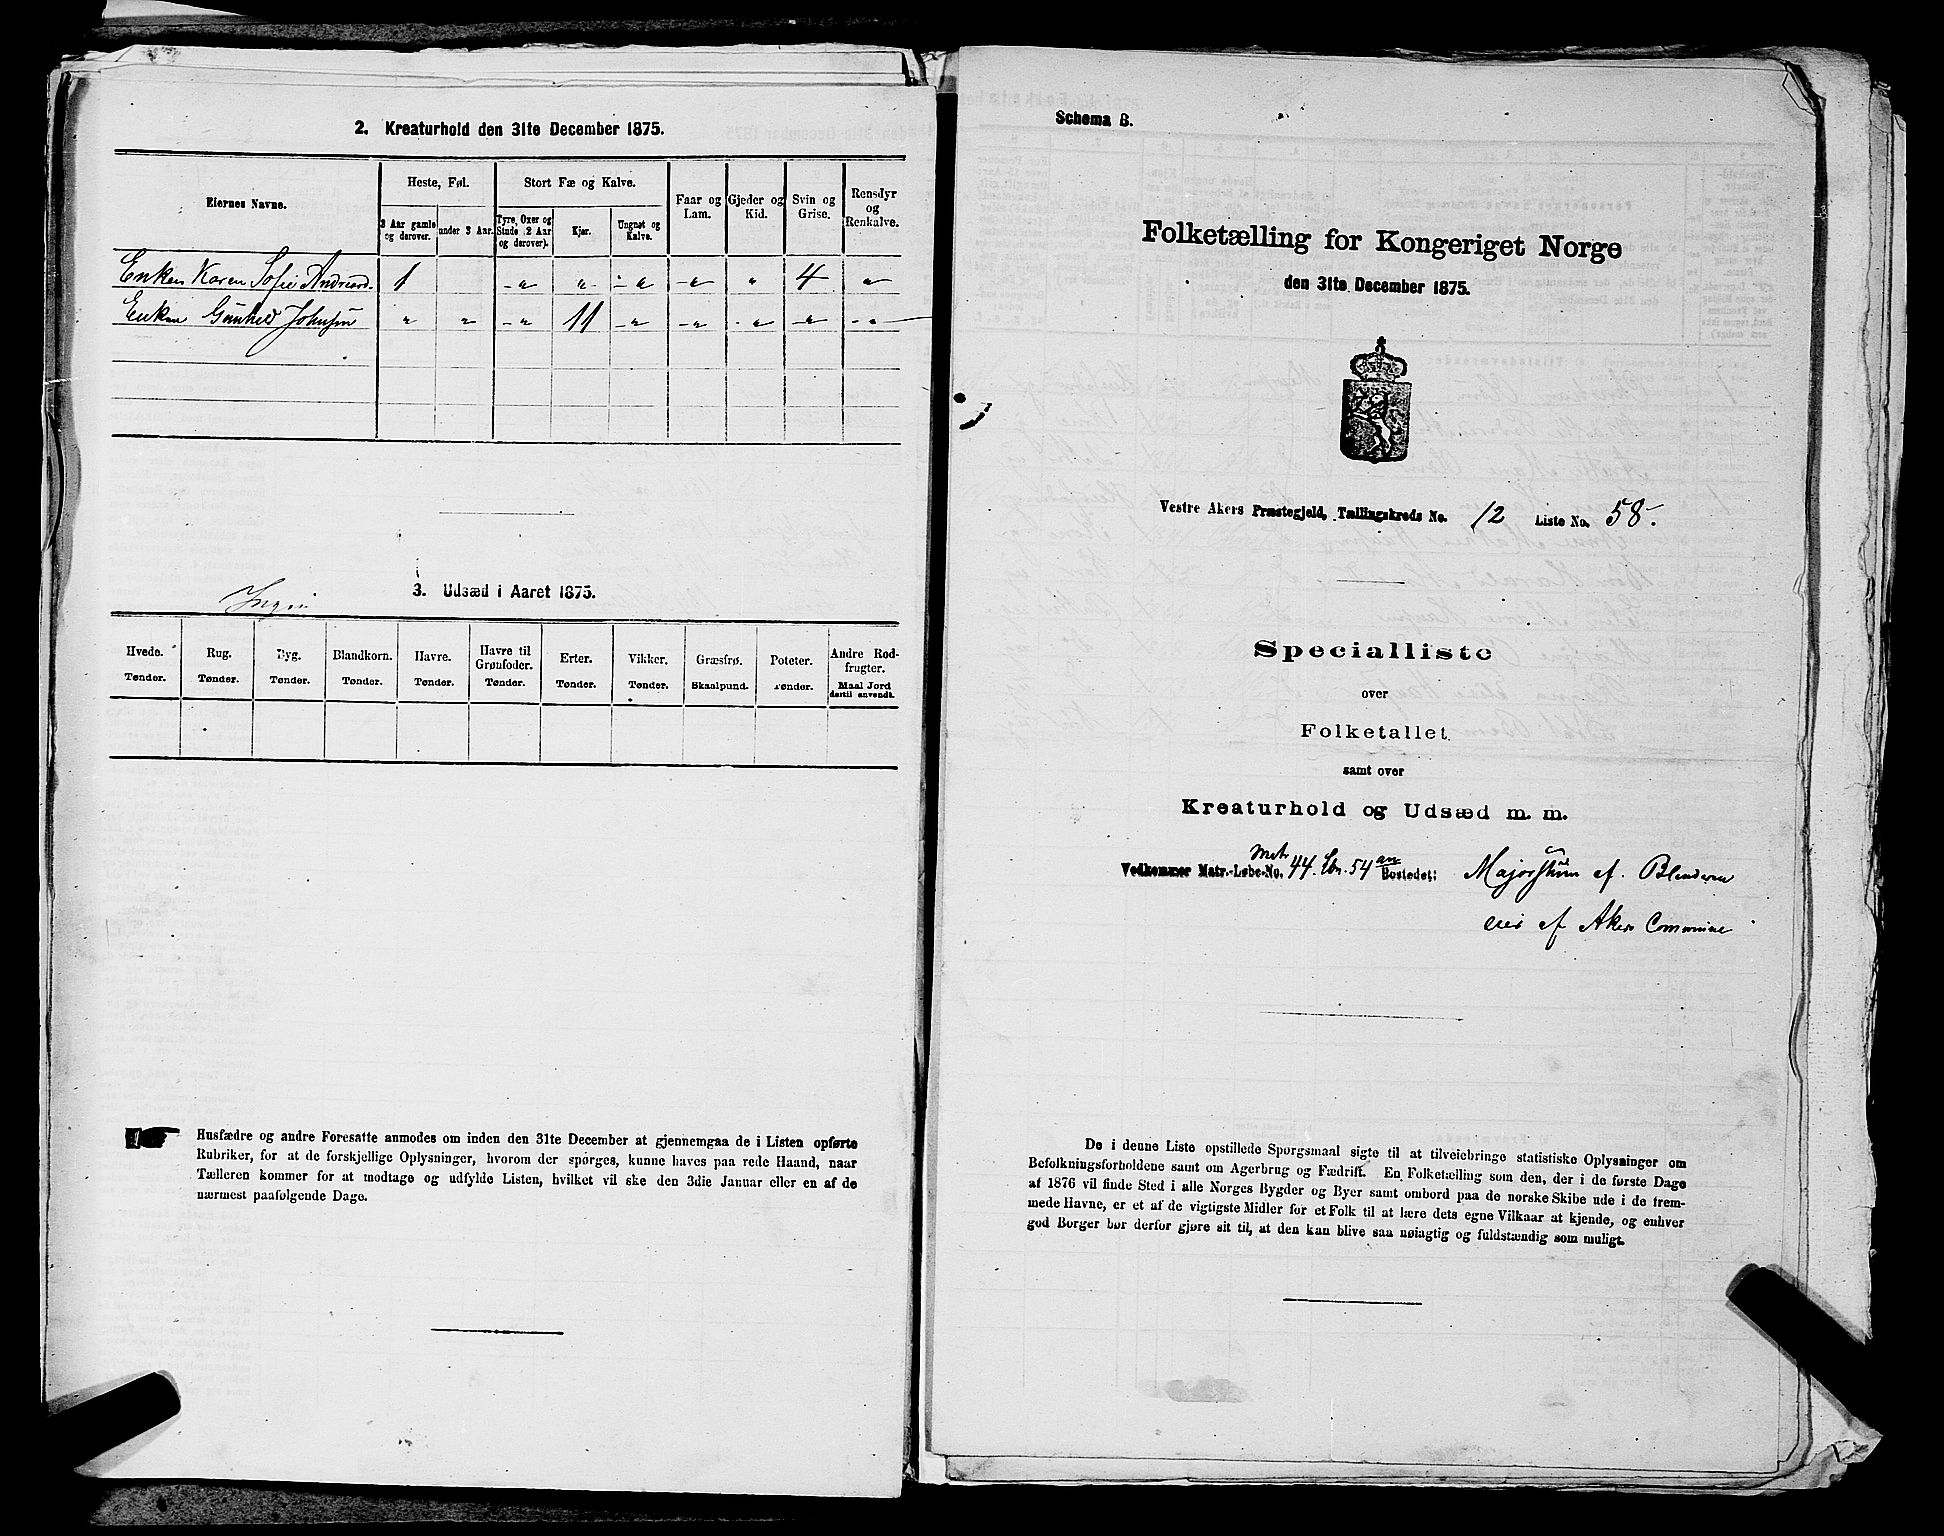 2. Kreaturhold den 31te December 1875.
Eiernes Navne.
Heste, Føl.
3 Aar gamle og derover.
under 3 Aar.
Stort Fæ og Kalve.
Tyre, Oxer og Stude (2 Aar og derover).
Kjør.
Ungnøt og Kalve.
Faar og Lam.
Gjeder og Kid.
Svin og Grise.
Rensdyr og Renkalve.
Enken Karen Sofie Andreasd. 1 " " " " " 4 "
Enken Gunhild Johnsen " " " 11 " " " " "
3. Udsæd i Aaret 1875.
Ingen
Hvede. Tønder.
Rug. Tønder.
Byg. Tønder.
Blandkorn. Tønder.
Havre. Tønder.
Havre til Grønfoder. Tønder.
Erter. Tønder.
Vikker. Tønder.
Græsfrø. Skaalpund.
Poteter. Tønder.
Andre Rodfrugter. Maal Jord dertil anvendt.
Husfædre og andre Foresatte anmodes om inden den 31te December at gjennemgaa de i Listen opførte
Rubriker, for at de forskjellige Oplysninger, hvorom der spørges, kunne haves paa rede Haand, naar
Tælleren kommer for at modtage og udfylde Listen, hvilket vil ske den 3die Januar eller en af de
nærmest paafølgende Dage.
Schema B.
Folketælling for Kongeriget Norge
den 31te December 1875.
Vestre Akers Præstegjeld, Tællingskreds No. 12 Liste No. 58.
Specialliste
over
Folketallet
samt over
Kreaturhold og Udsæd m. m.
Vedkommer Matr.-Løbe-No. 44. Lbn. 54 Bostedet: Majorstuen af Blinderen
eies af Akers Commune
De i denne Liste opstillede Spørgsmaal sigte til at tilveiebringe statistiske Oplysninger om
Befolkningsforholdene samt om Agerbrug og Fædrift. En Folketælling som den, der i de første Dage
af 1876 vil finde Sted i alle Norges Bygder og Byer samt ombord paa de norske Skibe ude i de fremmede
Havne, er et af de vigtigste Midler for et Folk til at lære dets egne Vilkaar at kjende, og enhver
god Borger bør derfor gjøre sit til, at den kan blive saa nøiagtig og fuldstændig som muligt.